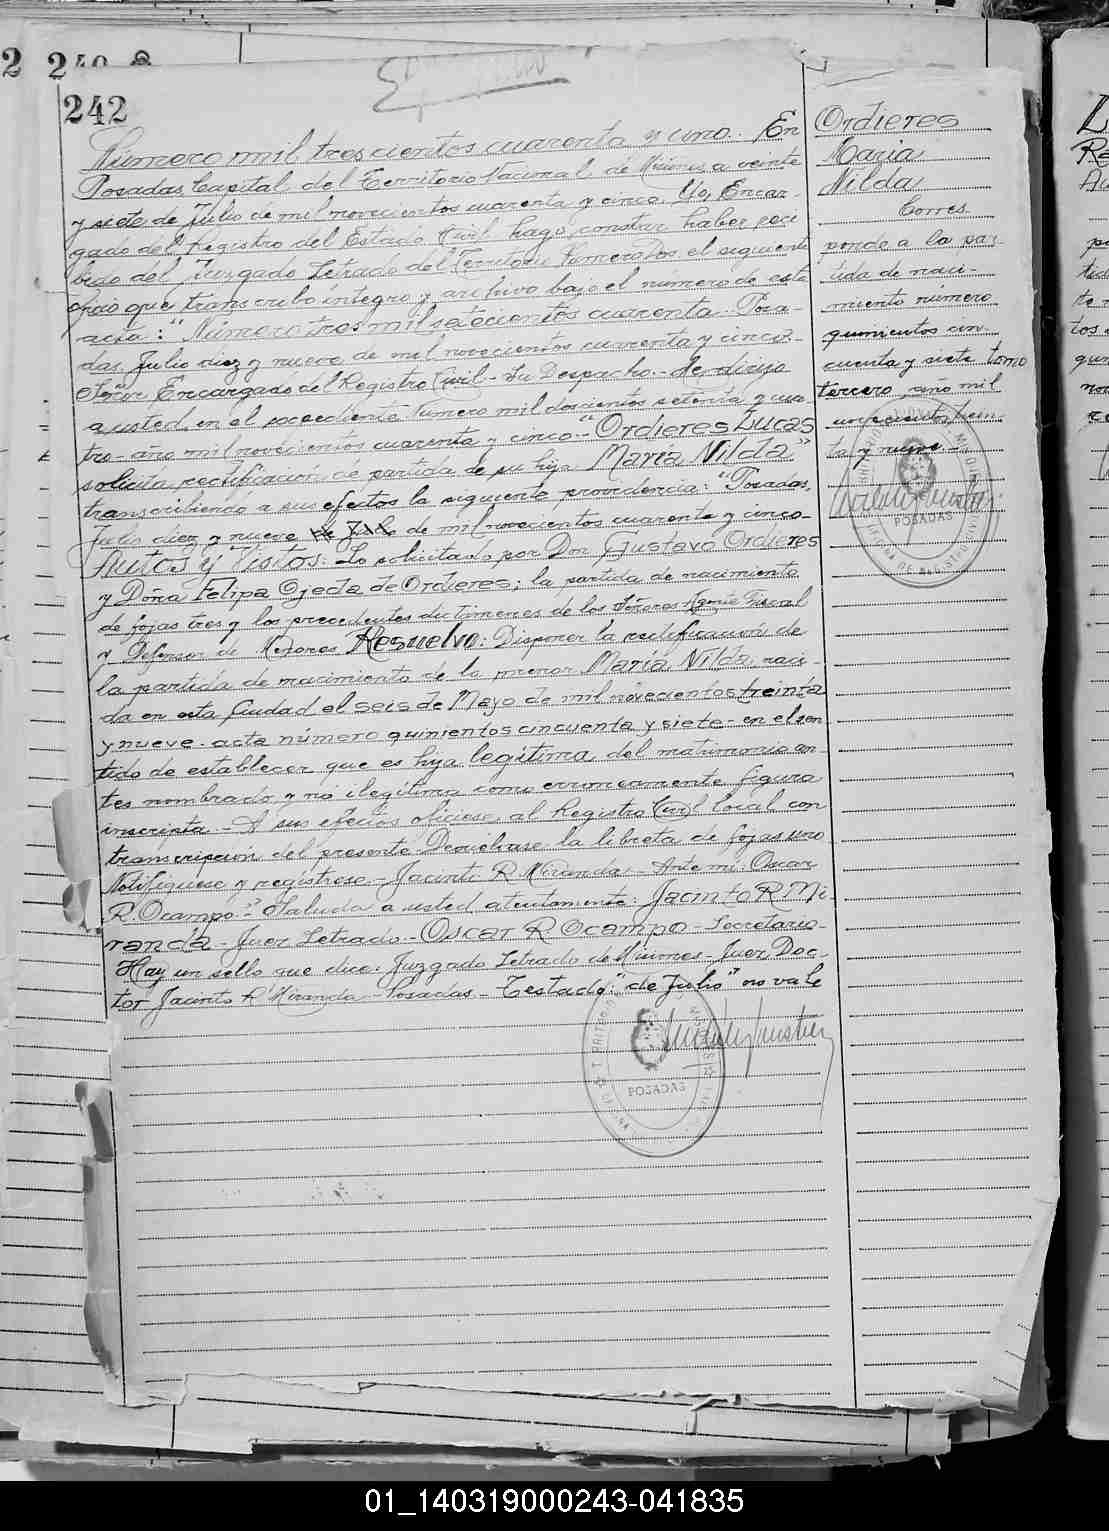 242
Número mil trescientos cuarenta y uno. En
Posadas, Capital del Territorio Nacional de Misiones a veinte
y siete de Julio de mil novecientos cuarenta y cinco. Yo, Encar-
gado del Registro del Estado Civil, hago constar haber reci-
bido del Juzgado Letrado del Territorio el siguiente
oficio que transcribo íntegro y archivo bajo el número de esta
acta: "Número tres mil setecientos cuarenta. Posa-
das, Julio diez y nueve de mil novecientos cuarenta y cinco.-
Señor Encargado del Registro Civil - Su Despacho.- Me dirijo
a usted en el expediente número mil doscientos setenta y cua-
tro - año mil novecientos cuarenta y cinco - "Ordieres Lucas
solicita rectificación de partida de su hija María Nilda"
transcribiendo a sus efectos la siguiente providencia: "Posadas,
Julio diez y nueve de Julio de mil novecientos cuarenta y cinco-
Autos y Vistos: Lo solicitado por Don Gustavo Ordieres
y Doña Felipa Ojeda de Ordieres; la partida de nacimiento
de fojas tres y los precedentes dictámenes de los Señores Agente Fiscal
y Defensor de Menores Resuelvo: Disponer la rectificación de
la partida de nacimiento de la menor María Nilda, naci-
da en esta Ciudad el seis de Mayo de mil novecientos treinta
y nueve - acta número quinientos cincuenta y siete - en el sen
tido de establecer que es hija legítima del matrimonio an-
tes nombrado y no ilegítima como erróneamente figura
inscripta - A sus efectos ofíciese al Registro Civil local con
transcripción del presente. Devuélvase la libreta de fojas uno
Notifíquese y regístrese - Jacinto R Miranda - Ante mí: Oscar
R. Ocampo." Saluda a usted atentamente: Jacinto R Mi-
randa - Juez Letrado - Oscar R Ocampo - Secretario-
Hay un sello que dice: Juzgado Letrado de Misiones - Juez Doc-
tor Jacinto R Miranda - Posadas - Testado: "de Julio" no vale
POSADAS
Ordieres
Maria
Nilda
Corres-
ponde a la par-
tida de naci-
miento número
quinientos cin-
cuenta y siete tomo
tercero, año mil
novecientos trein-
ta y nueve.
POSADAS
01_140319000243-041835